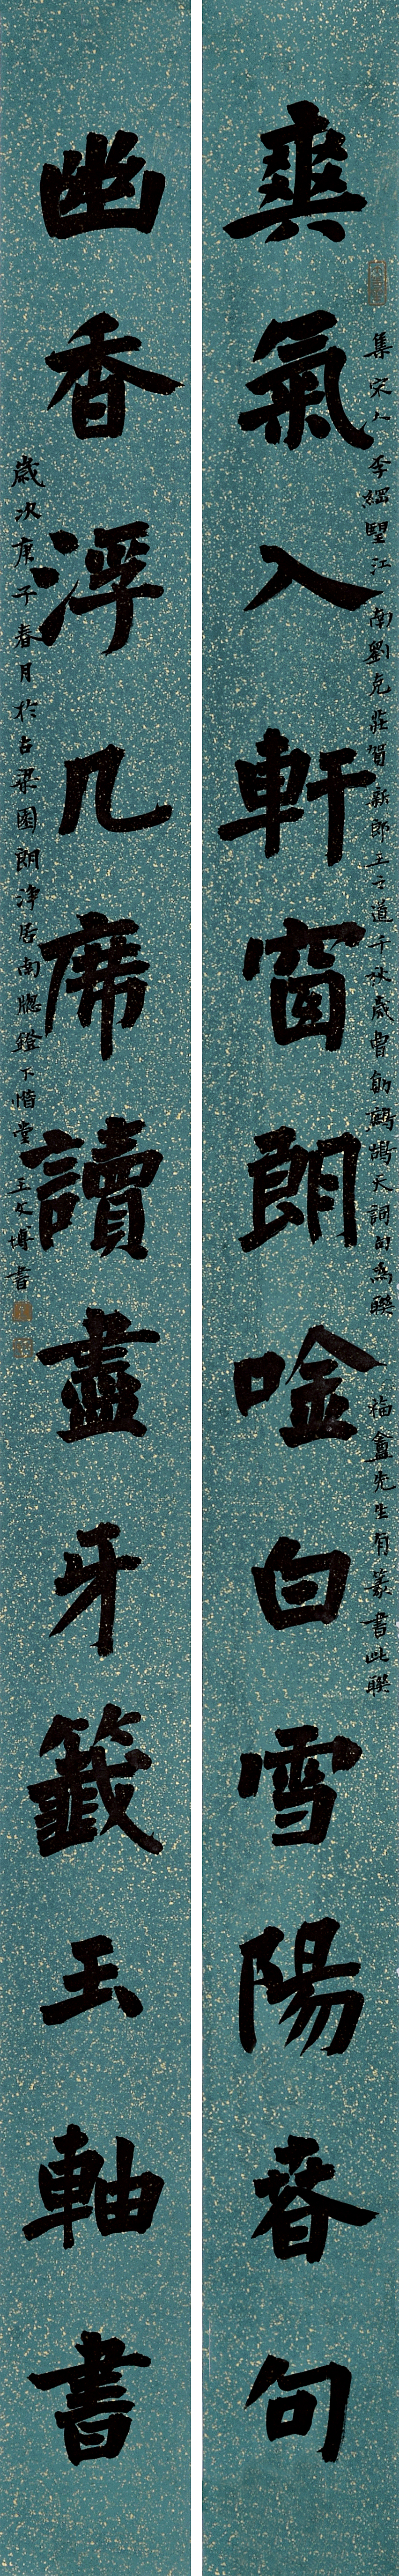 爽氣入軒窗朗唫白雪陽春句
集宋人李綱望江南劉克莊賀新郎王之道千秋歲曾覿鷓鴣天詞句為聯
福盦先生有篆書此聯
幽香浮几席讀盡牙籤玉軸書
歲次庚子春月於古梁園朗淨居南牕鐙下惜堂王文博書